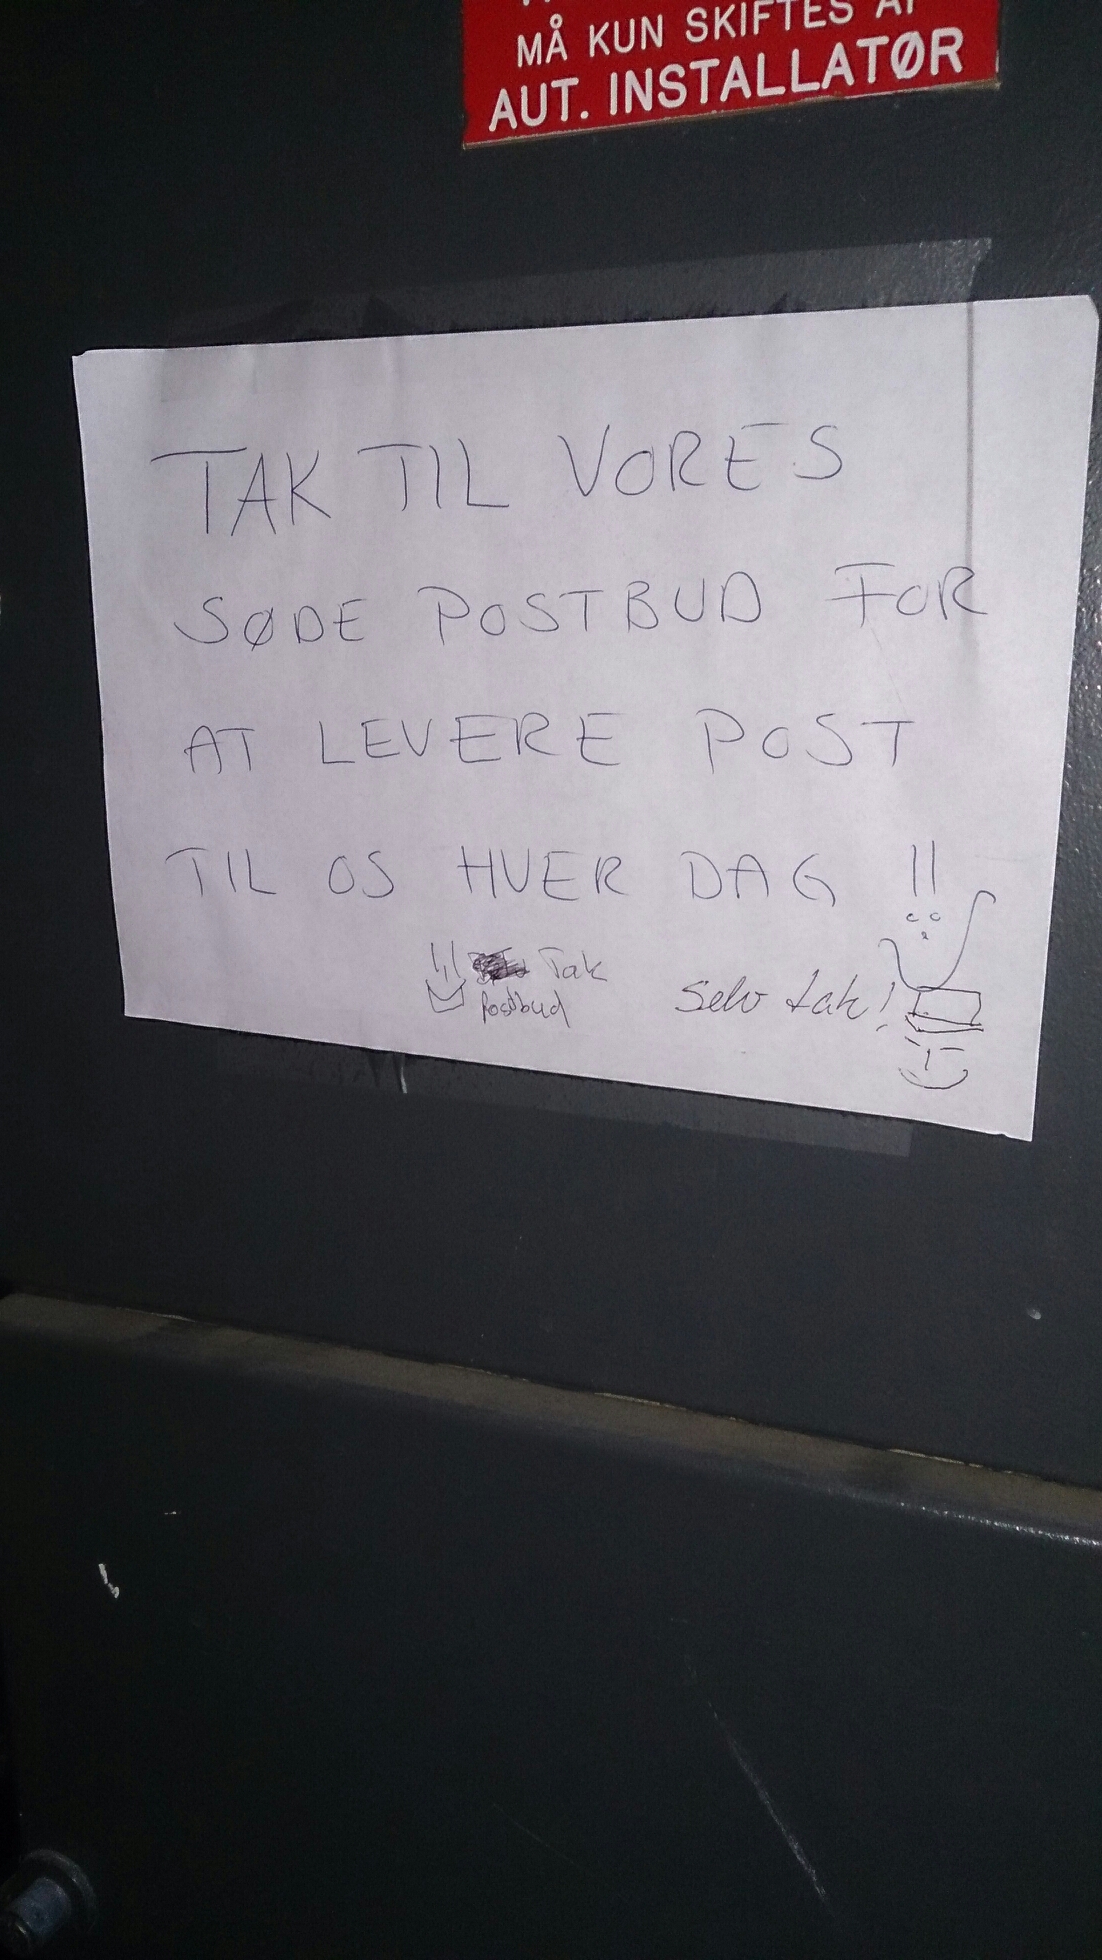 MÅ KUN SKIFTES AF
AUT. INSTALLATØR
TAK TIL VORES
SØDE POSTBUD FOR
AT LEVERE POST
TIL OS HVER DAG !!
Tak
Postbud
Selv tak!